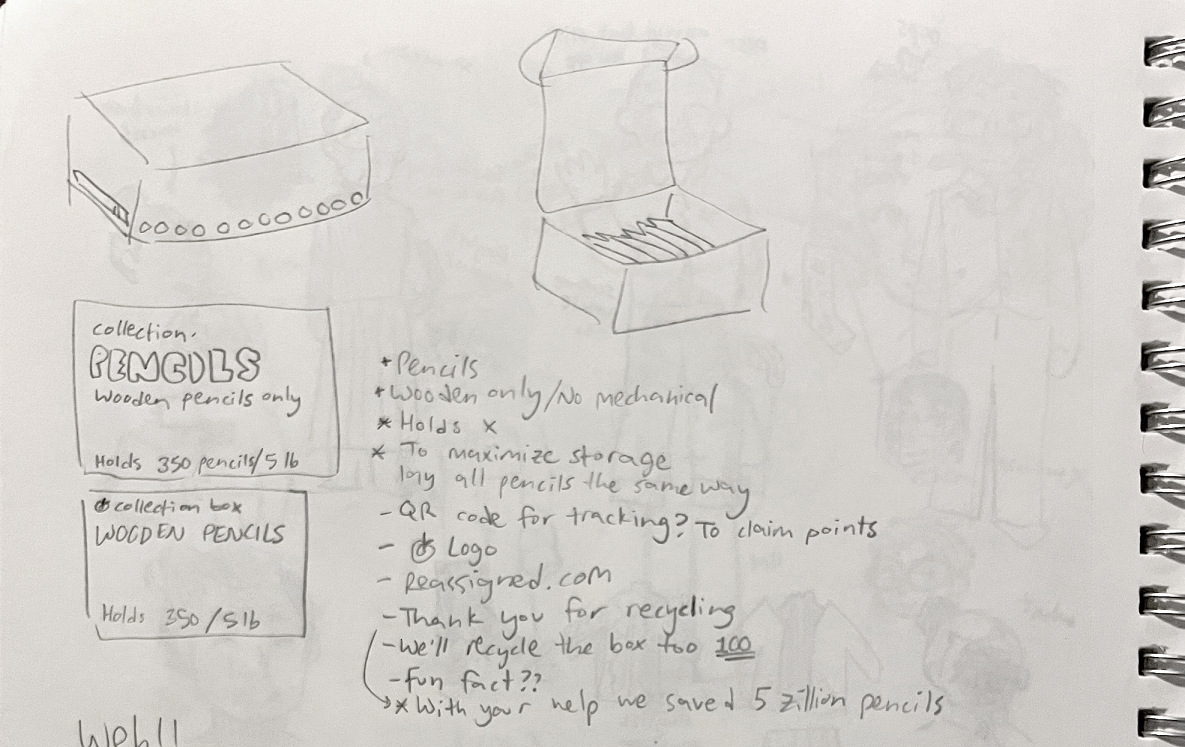 collection.
PENCILS
Wooden pencils only
Holds 350 pencils/5 lb
collection box
WOODEN PENCILS
Holds 350/5lb
+ Pencils
+ Wooden only/No mechanical
* Holds x
* To maximize storage
lay all pencils the same way
- QR code for tracking? To claim points
- Logo
- Reassigned.com
- Thank you for recycling
- We'll recycle the box too 100
- Fun fact??
* With your help we saved 5 zillion pencils